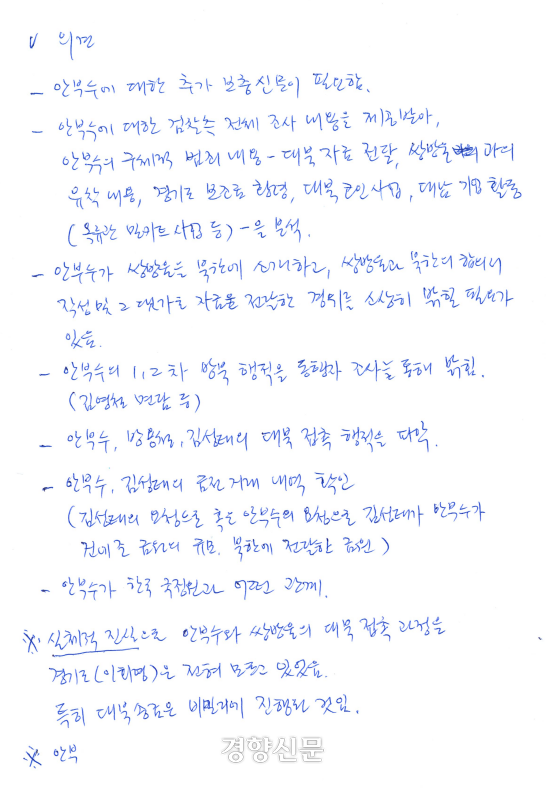 √ 의견
- 안부수에 대한 추가 보충신문이 필요함.
- 안부수에 대한 검찰측 전체 조사 내용을 제공받아,
안부수의 구체적 범죄 내용 - 대북 자료 전달, 쌍방울 과의
유착 내용, 경기도 보조금 횡령, 대북 코인사업, 대남 기업 활동
(옥류관 밀키트 사업 등) - 을 분석.
- 안부수가 쌍방울을 북한에 소개하고, 쌍방울과 북한의 합의서
작성 및 그 대가로 자금을 전달한 경위를 소상히 밝힐 필요가
있음.
- 안부수의 1, 2차 방북 행적을 동행자 조사를 통해 밝힘.
(김영철 면담 등)
- 안부수, 방용철, 김성태의 대북 접촉 행적을 파악.
- 안부수, 김성태의 금전거래 내역 확인
(김성태의 요청으로 혹은 안부수의 요청으로 김성태가 안부수가
건네준 금원의 규모. 북한에 전달한 금원)
- 안부수가 한국 국정원과 어떤 관계.
※ 실체적 진실으로 안부수와 쌍방울의 대북 접촉 과정을
경기도(이화영)은 전혀 모르고 있었음.
특히 대북송금은 비밀리에 진행된 것임.
※ 안부
경향신문